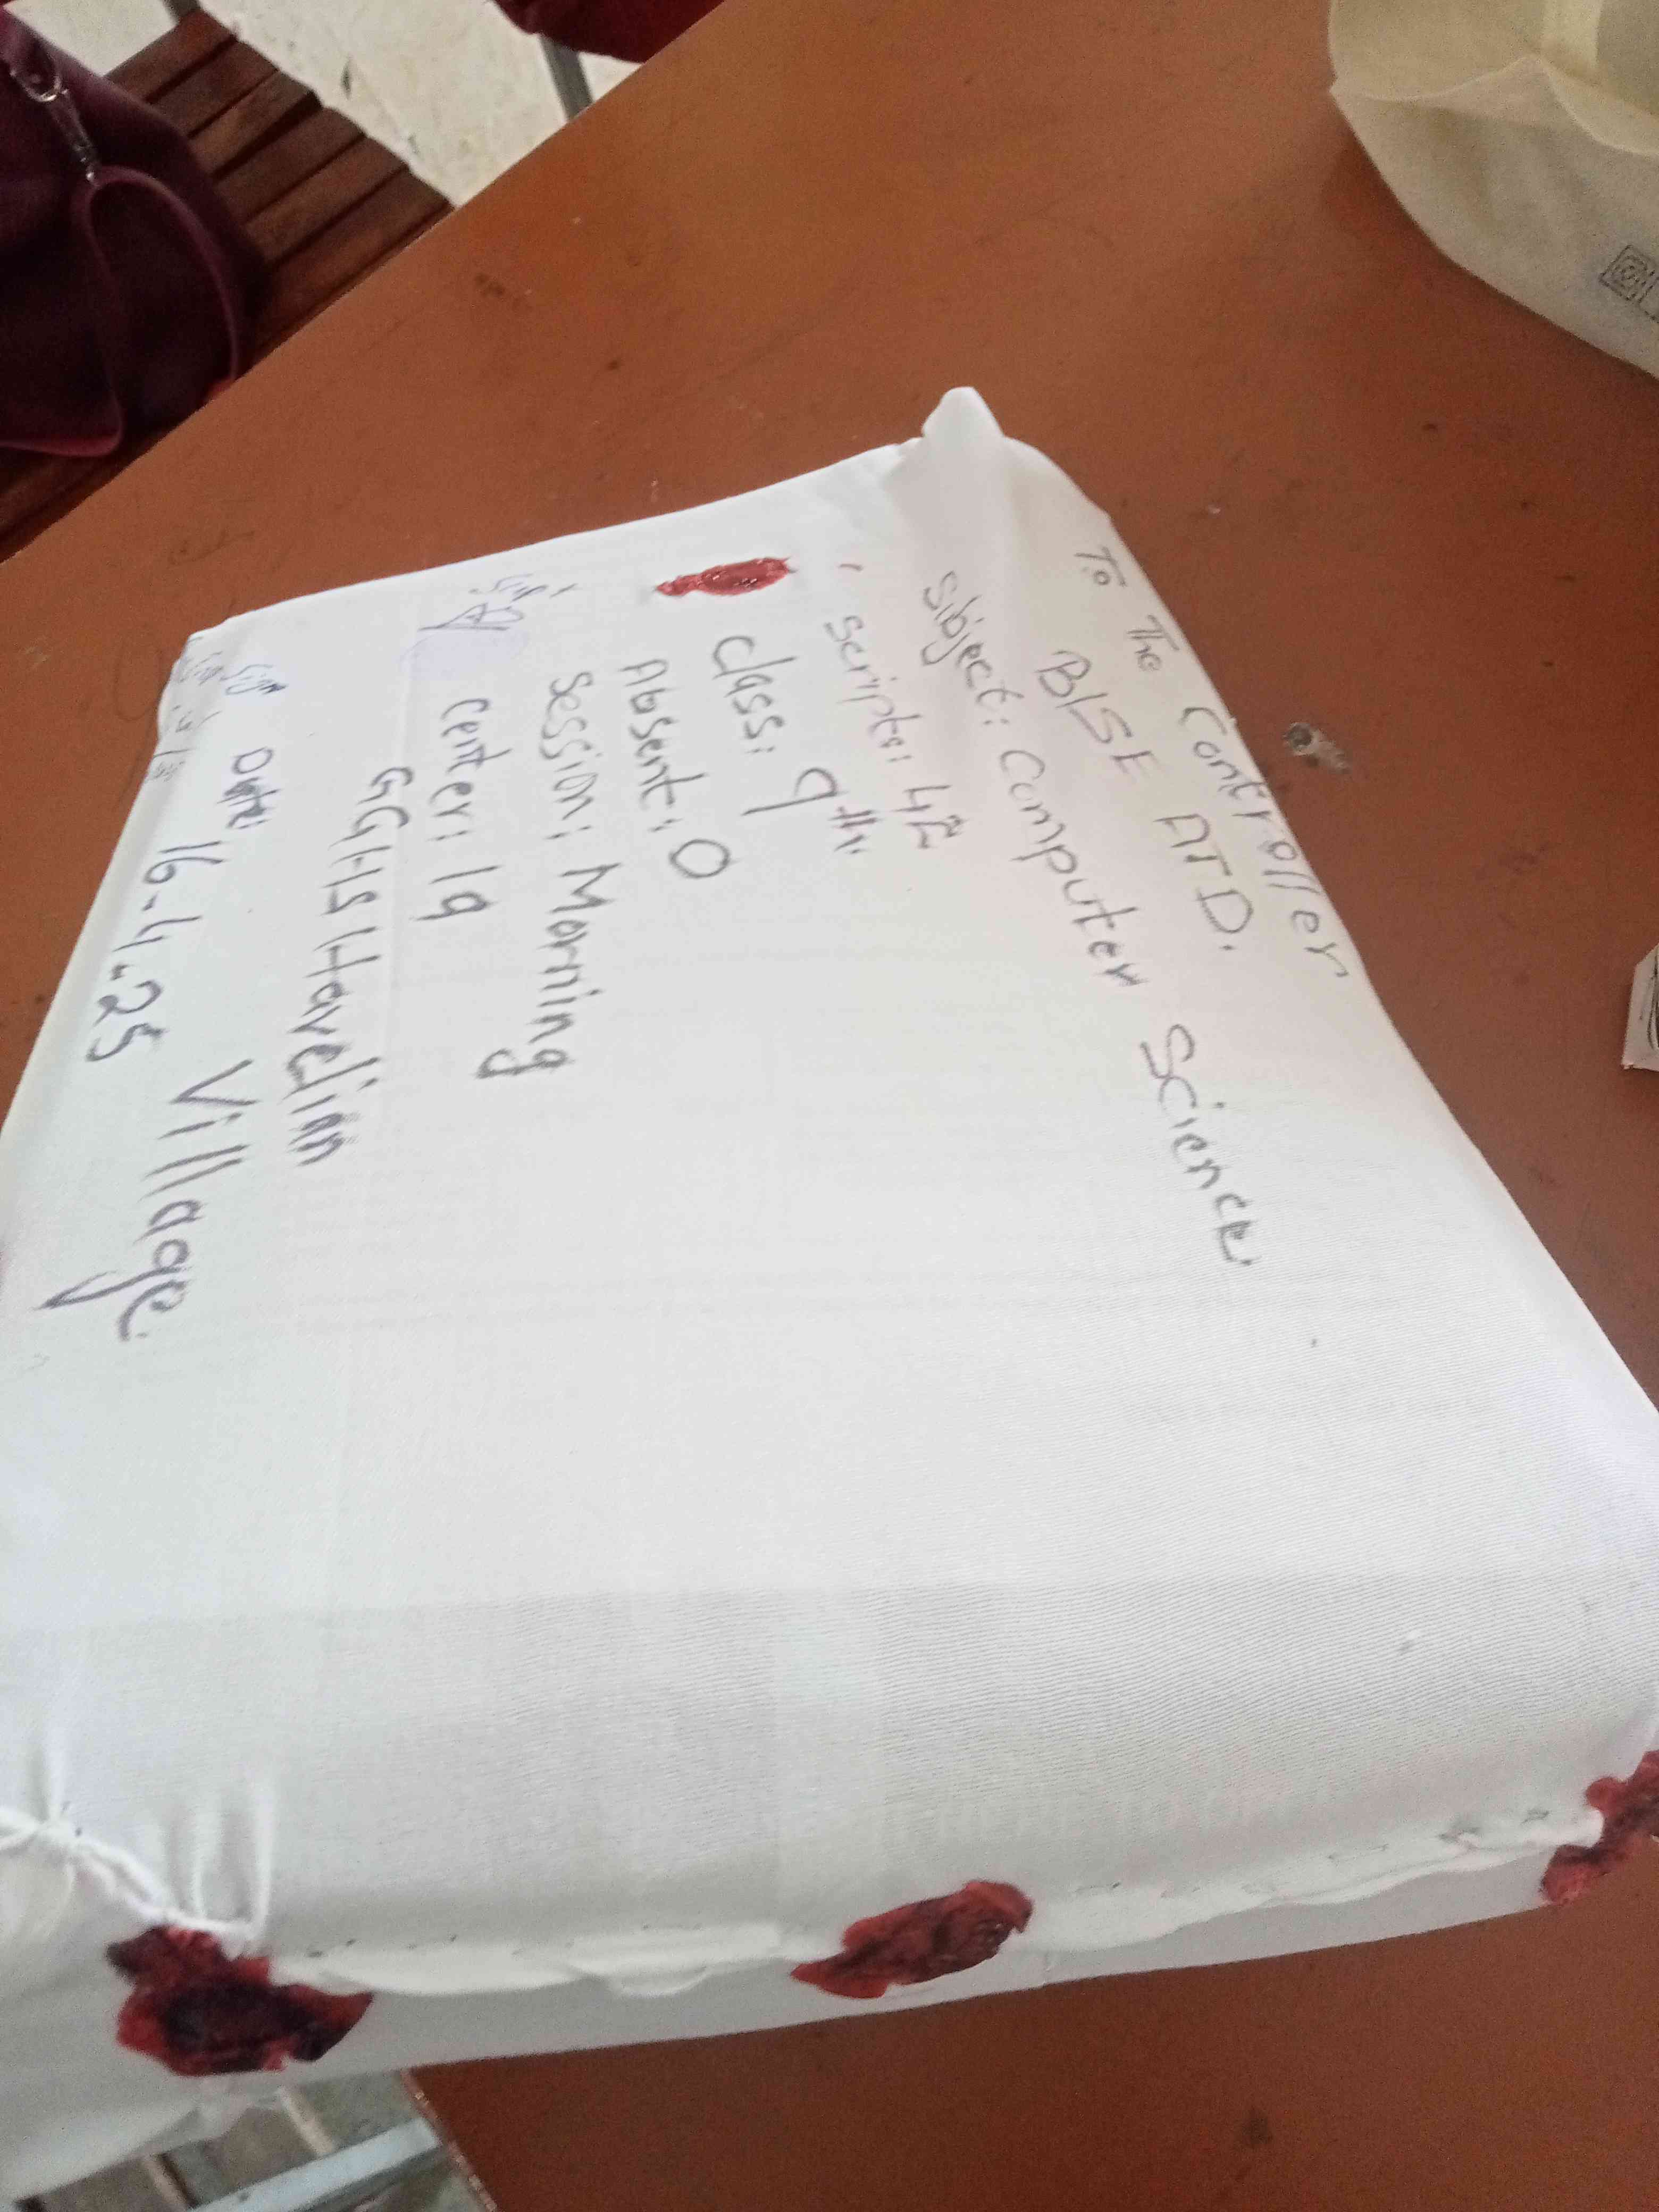 To The Controller
BISE ATD.
Subject: Computer Science
Scripts: 42
Class: 9th.
Absent: 0
Session: Morning
Center: 19
GGHS Havelian
Village.
Sign
Date: 16-4-25